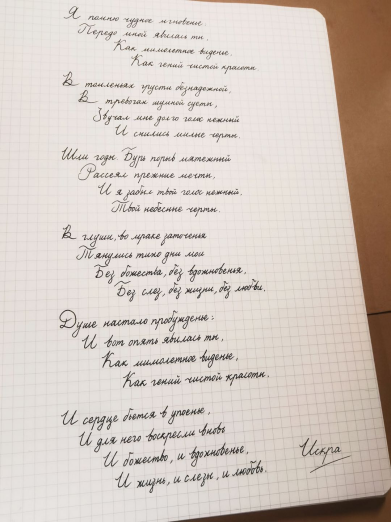 Я помню чудное мгновенье
Передо мной явилась ты,
Как мимолетное виденье,
Как гений чистой красоты
В томленьях грусти безнадежной,
В тревогах шумной суеты,
Звучал мне долго голос нежный
И снились милые черты.
Шли годы. Бурь порыв мятежный
Рассеял прежние мечты,
И я забыл твой голос нежный.
Твой небесные черты.
В глуши, во мраке заточенья
Тянулись тихо дни мои
Без божества, без вдохновенья,
Без слез, без жизни, без любви,
Душе настало пробужденье:
И вот опять явилась ты,
Как мимолетное виденье,
Как гений чистой красоты.
И сердце бьется в упоенье,
И для него воскресли вновь
И божество, и вдохновенье,
И жизнь, и слезы, и любовь.
Искра